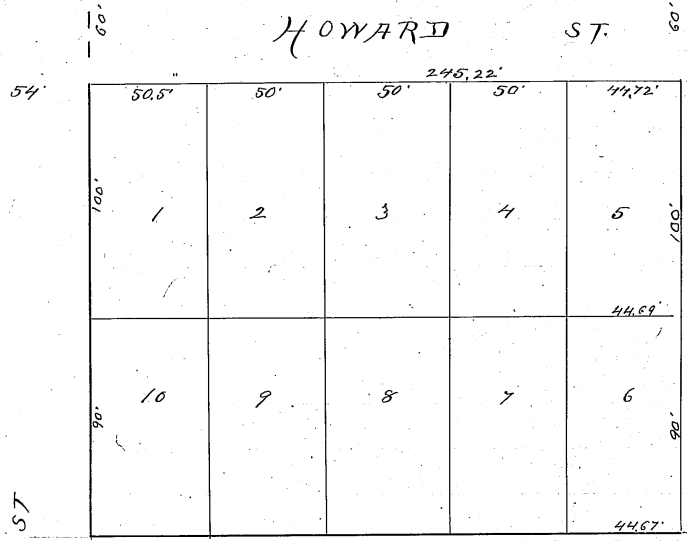 60' HOWARD ST. 60'
245.22'
54' 50.5' 50' 50' 50' 44.72'
100' 1 2 3 4 5 100'
44.69'
90' 10 9 8 7 6 90'
ST 44.67'